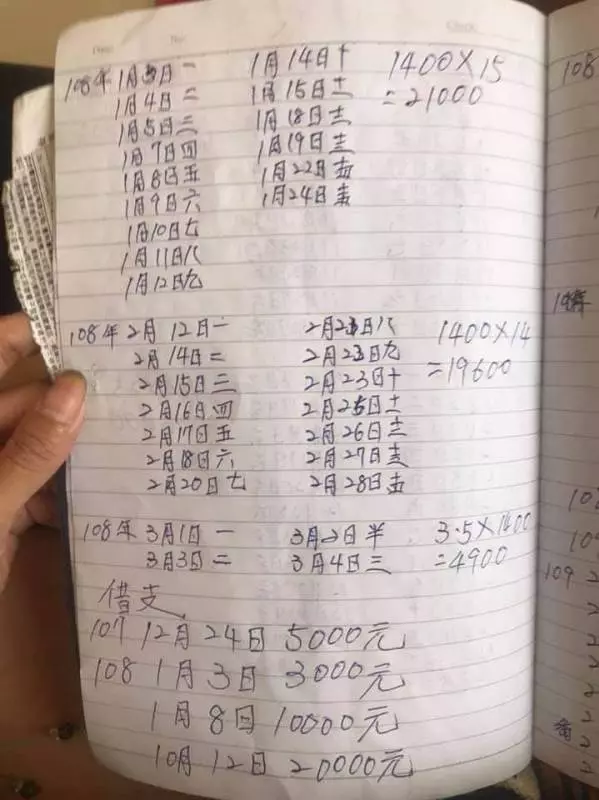 Date. No. Check.
108年1月3日一 1月14日十 1400×15
1月4日二 1月15日十一 =21000
1月5日三 1月18日十二
1月7日四 1月19日十三
1月8日五 1月22日十四
1月9日六 1月24日十五
1月10日七
1月11日八
1月12日九
108年2月12日一 2月23日八 1400×14
2月14日二 2月23日九 =19600
2月15日三 2月23日十
2月16日四 2月25日十一
2月17日五 2月26日十二
2月18日六 2月27日十三
2月20日七 2月28日十四
108年3月1日一 3月2日半 3.5×1400
3月3日二 3月4日三 =4900
借支
107 12月24日 5000元
108 1月3日 3000元
1月8日 10000元
10月12日 20000元
108
109 2